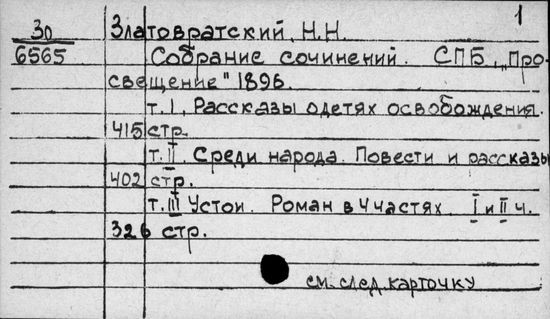 1
Зо Златовратский, Н.Н.
6565 Собрание сочинений. СПБ, „Про-
свещение" 1896.
т.I. Рассказы о детях освобождения.
415 стр.
т.II. Среди народа. Повести и рассказы
402 стр.
т.III Устои. Роман в 4 частях. I и II ч.
326 стр.
см. след. карточку